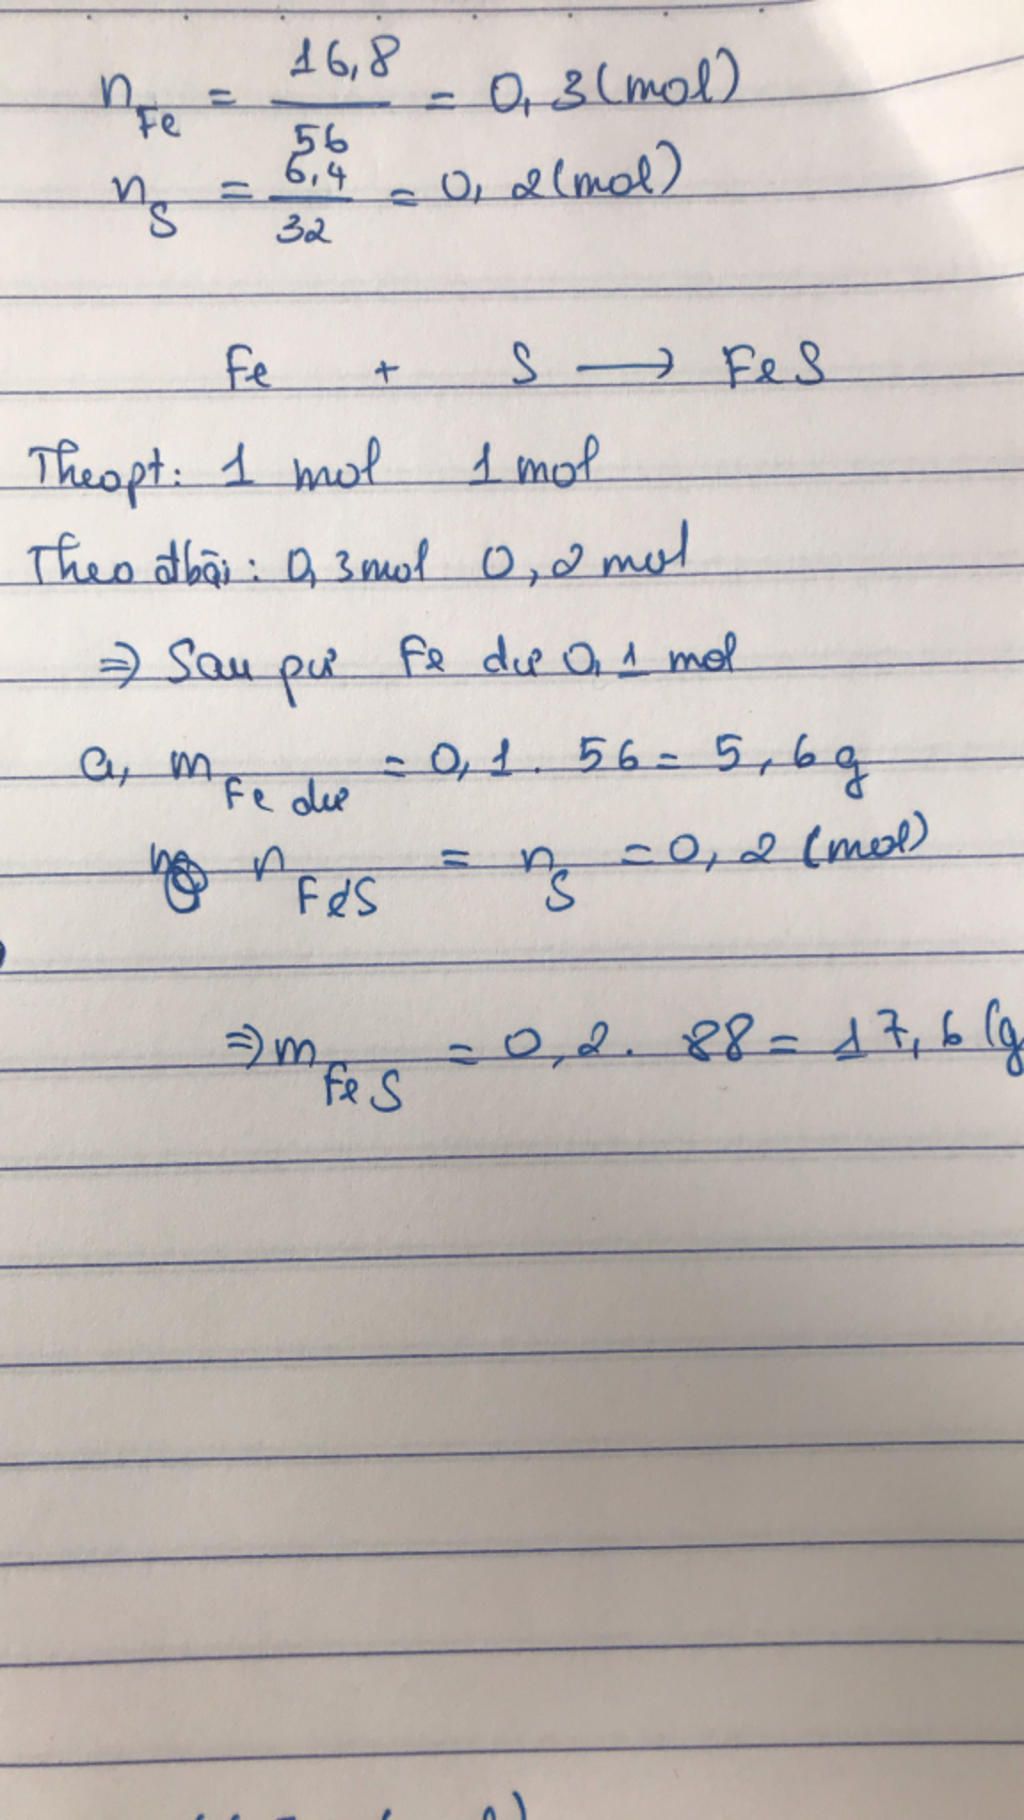 n Fe = 16,8 / 56 = 0,3 (mol)
n S = 6,4 / 32 = 0,2 (mol)
Fe + S → FeS
Theo pt: 1 mol 1 mol
Theo đbài: 0,3mol 0,2 mol
⇒ Sau pứ Fe dư 0,1 mol
a, m Fe dư = 0,1. 56 = 5,6 g
n FeS = n S = 0,2 (mol)
⇒ m FeS = 0,2. 88 = 17,6 (g